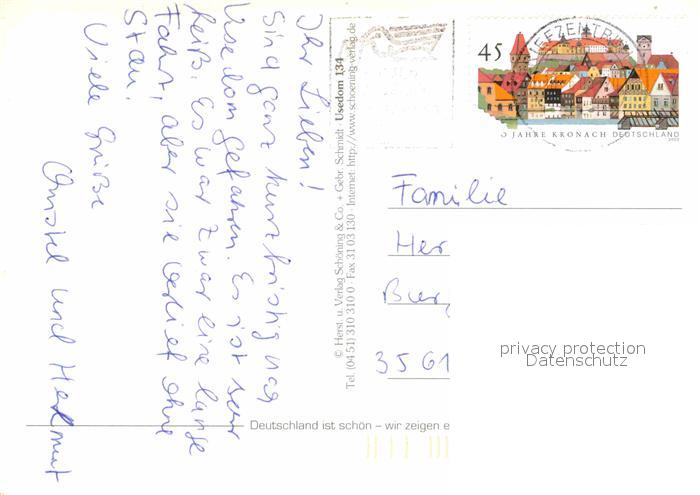 Ihr Lieben!
Sind ganz kurzfristig nach
Usedom gefahren. Es ist sehr
heiß. Es war zwar eine lange
Fahrt, aber sie verlief ohne
Stau.
Viele Grüße
Christel und Helmut
© Herst. u. Verlag Schöning & Co. + Gebr. Schmidt · Usedom 134
Tel. (04 51) 310 310 0 · Fax 31 03 130 · Internet: http://www.schoening-verlag.de
45
BRIEFZENTRUM
JAHRE KRONACH DEUTSCHLAND
Familie
Her
3561
privacy protection
Datenschutz
Deutschland ist schön – wir zeigen e